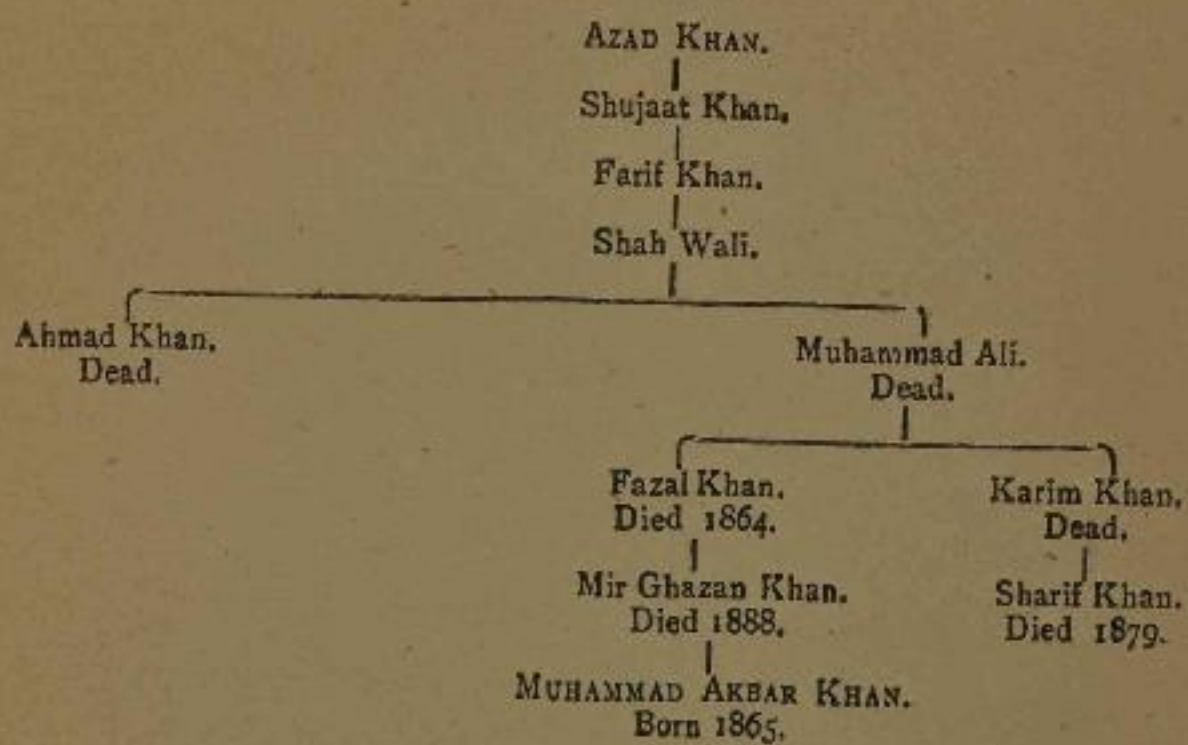 AZAD KHAN.
Shujaat Khan.
Farif Khan.
Shah Wali.
Ahmad Khan.
Dead.
Muhammad Ali.
Dead.
Fazal Khan.
Died 1864.
Karim Khan.
Dead.
Mir Ghazan Khan.
Died 1888.
Sharif Khan.
Died 1879.
MUHAMMAD AKBAR KHAN.
Born 1865.